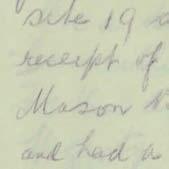 site 19
receipt of
Mason
and had